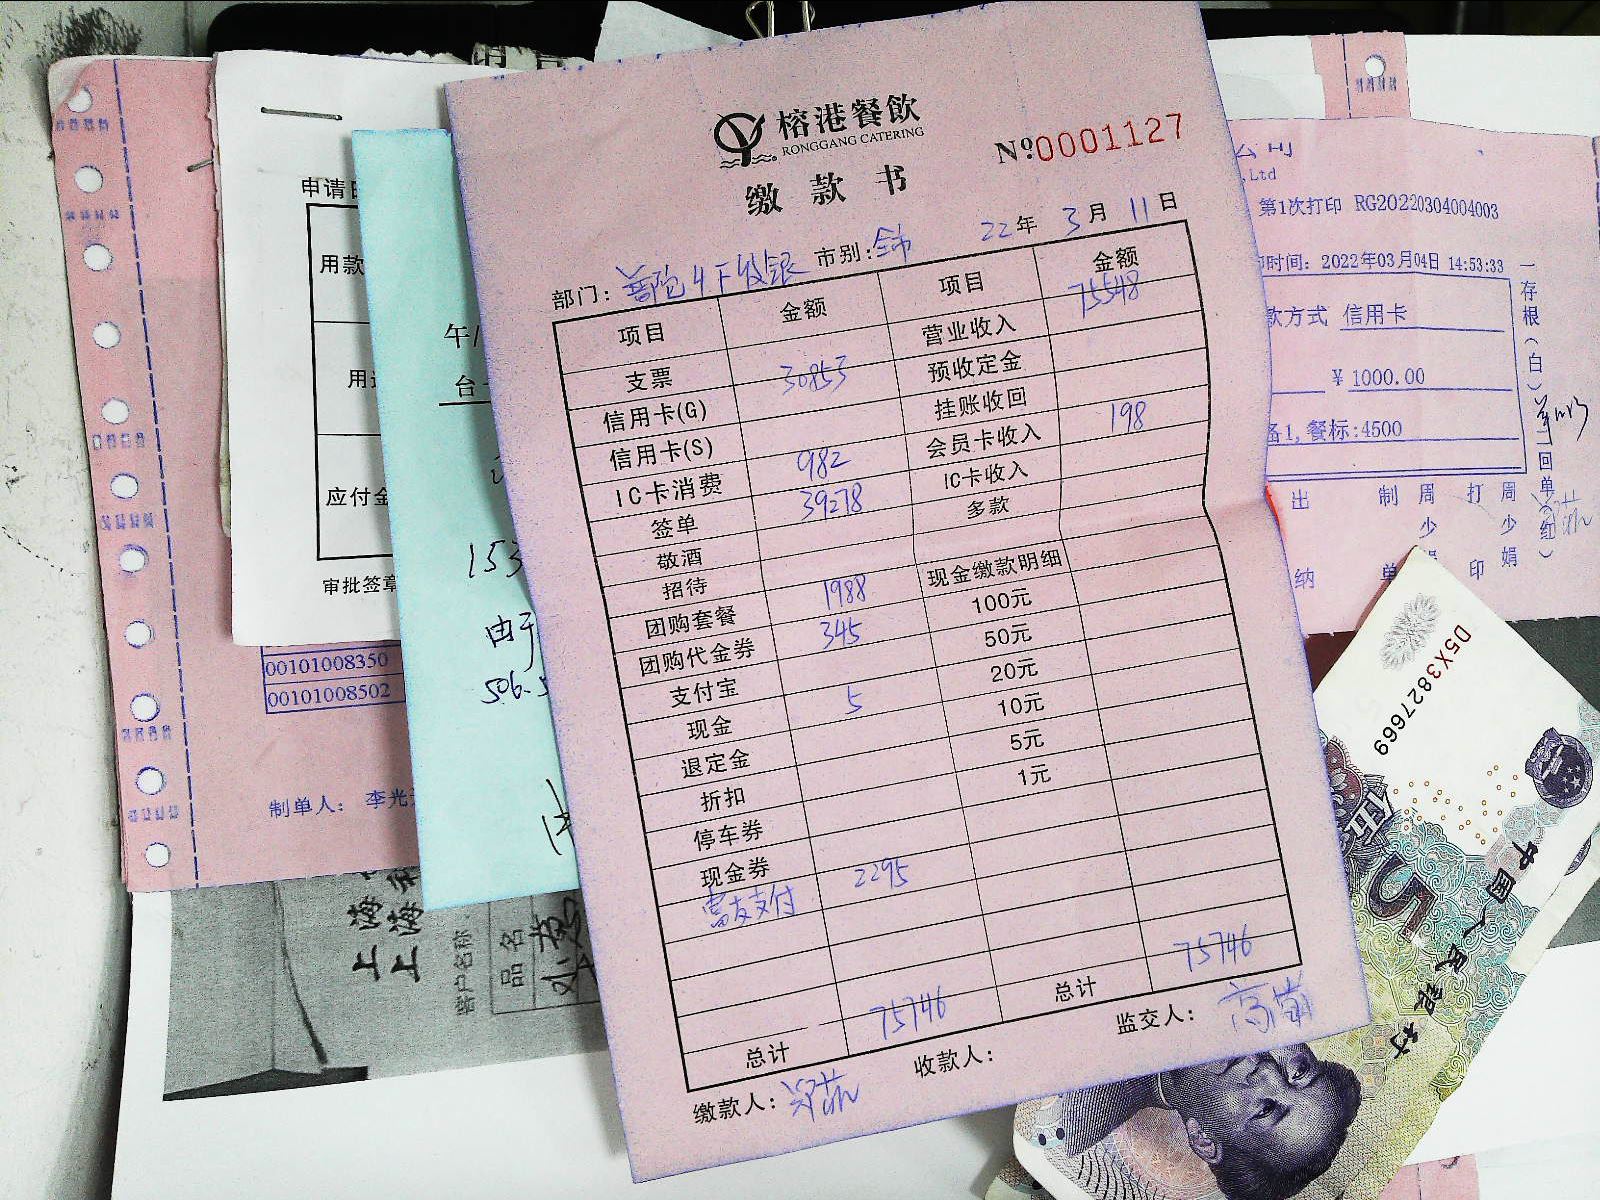 榕港餐飲
RONGGANG CATERING
Nº0001127
缴款书
部门：普陀4F收银 市别：全市 22年3月11日
项目 金额 项目 金额
营业收入 75548
支票 预收定金
信用卡(G) 30853 挂账收回
信用卡(S) 会员卡收入 198
IC卡消费 982 IC卡收入
签单 39278 多款
敬酒
招待 现金缴款明细
团购套餐 1988 100元
团购代金券 345 50元
支付宝 20元
现金 5 10元
退定金 5元
折扣 1元
停车券
现金券 2295
支付
总计 75746 总计 75746
缴款人： 收款人： 监交人：
申请
用款
用
应付金
审批签章
00101008350
00101008502
制单人： 李光
午
台
153
由于
506.5
上海
上海
客户名称
品名
公司
,Ltd
第1次打印 RG20220304004003
时间：2022年03月04日 14:53:33
款方式 信用卡
¥ 1000.00
备1,餐标:4500
出纳
制单
周少娟
打印
周少娟
一存根(白)
二回单(红)
D5X3827669
中国人民银行
伍
5